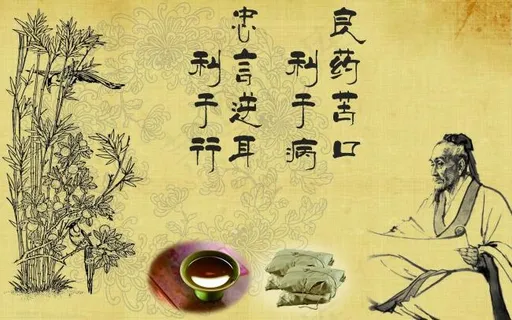 良药苦口
利于病
忠言逆耳
利于行